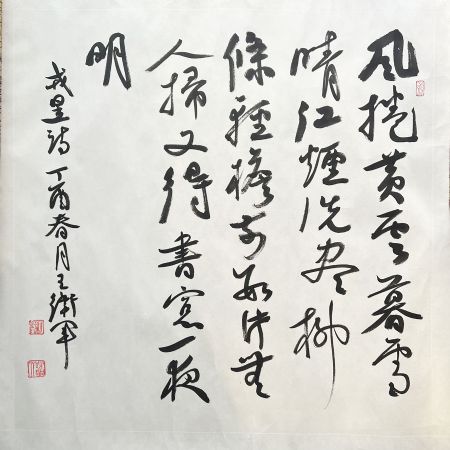 風捲黄雲暮雪
晴江煙洗盡柳
條輕檐前數片無
人掃又得書窓一夜
明
戎昱詩丁酉春月王衛軍